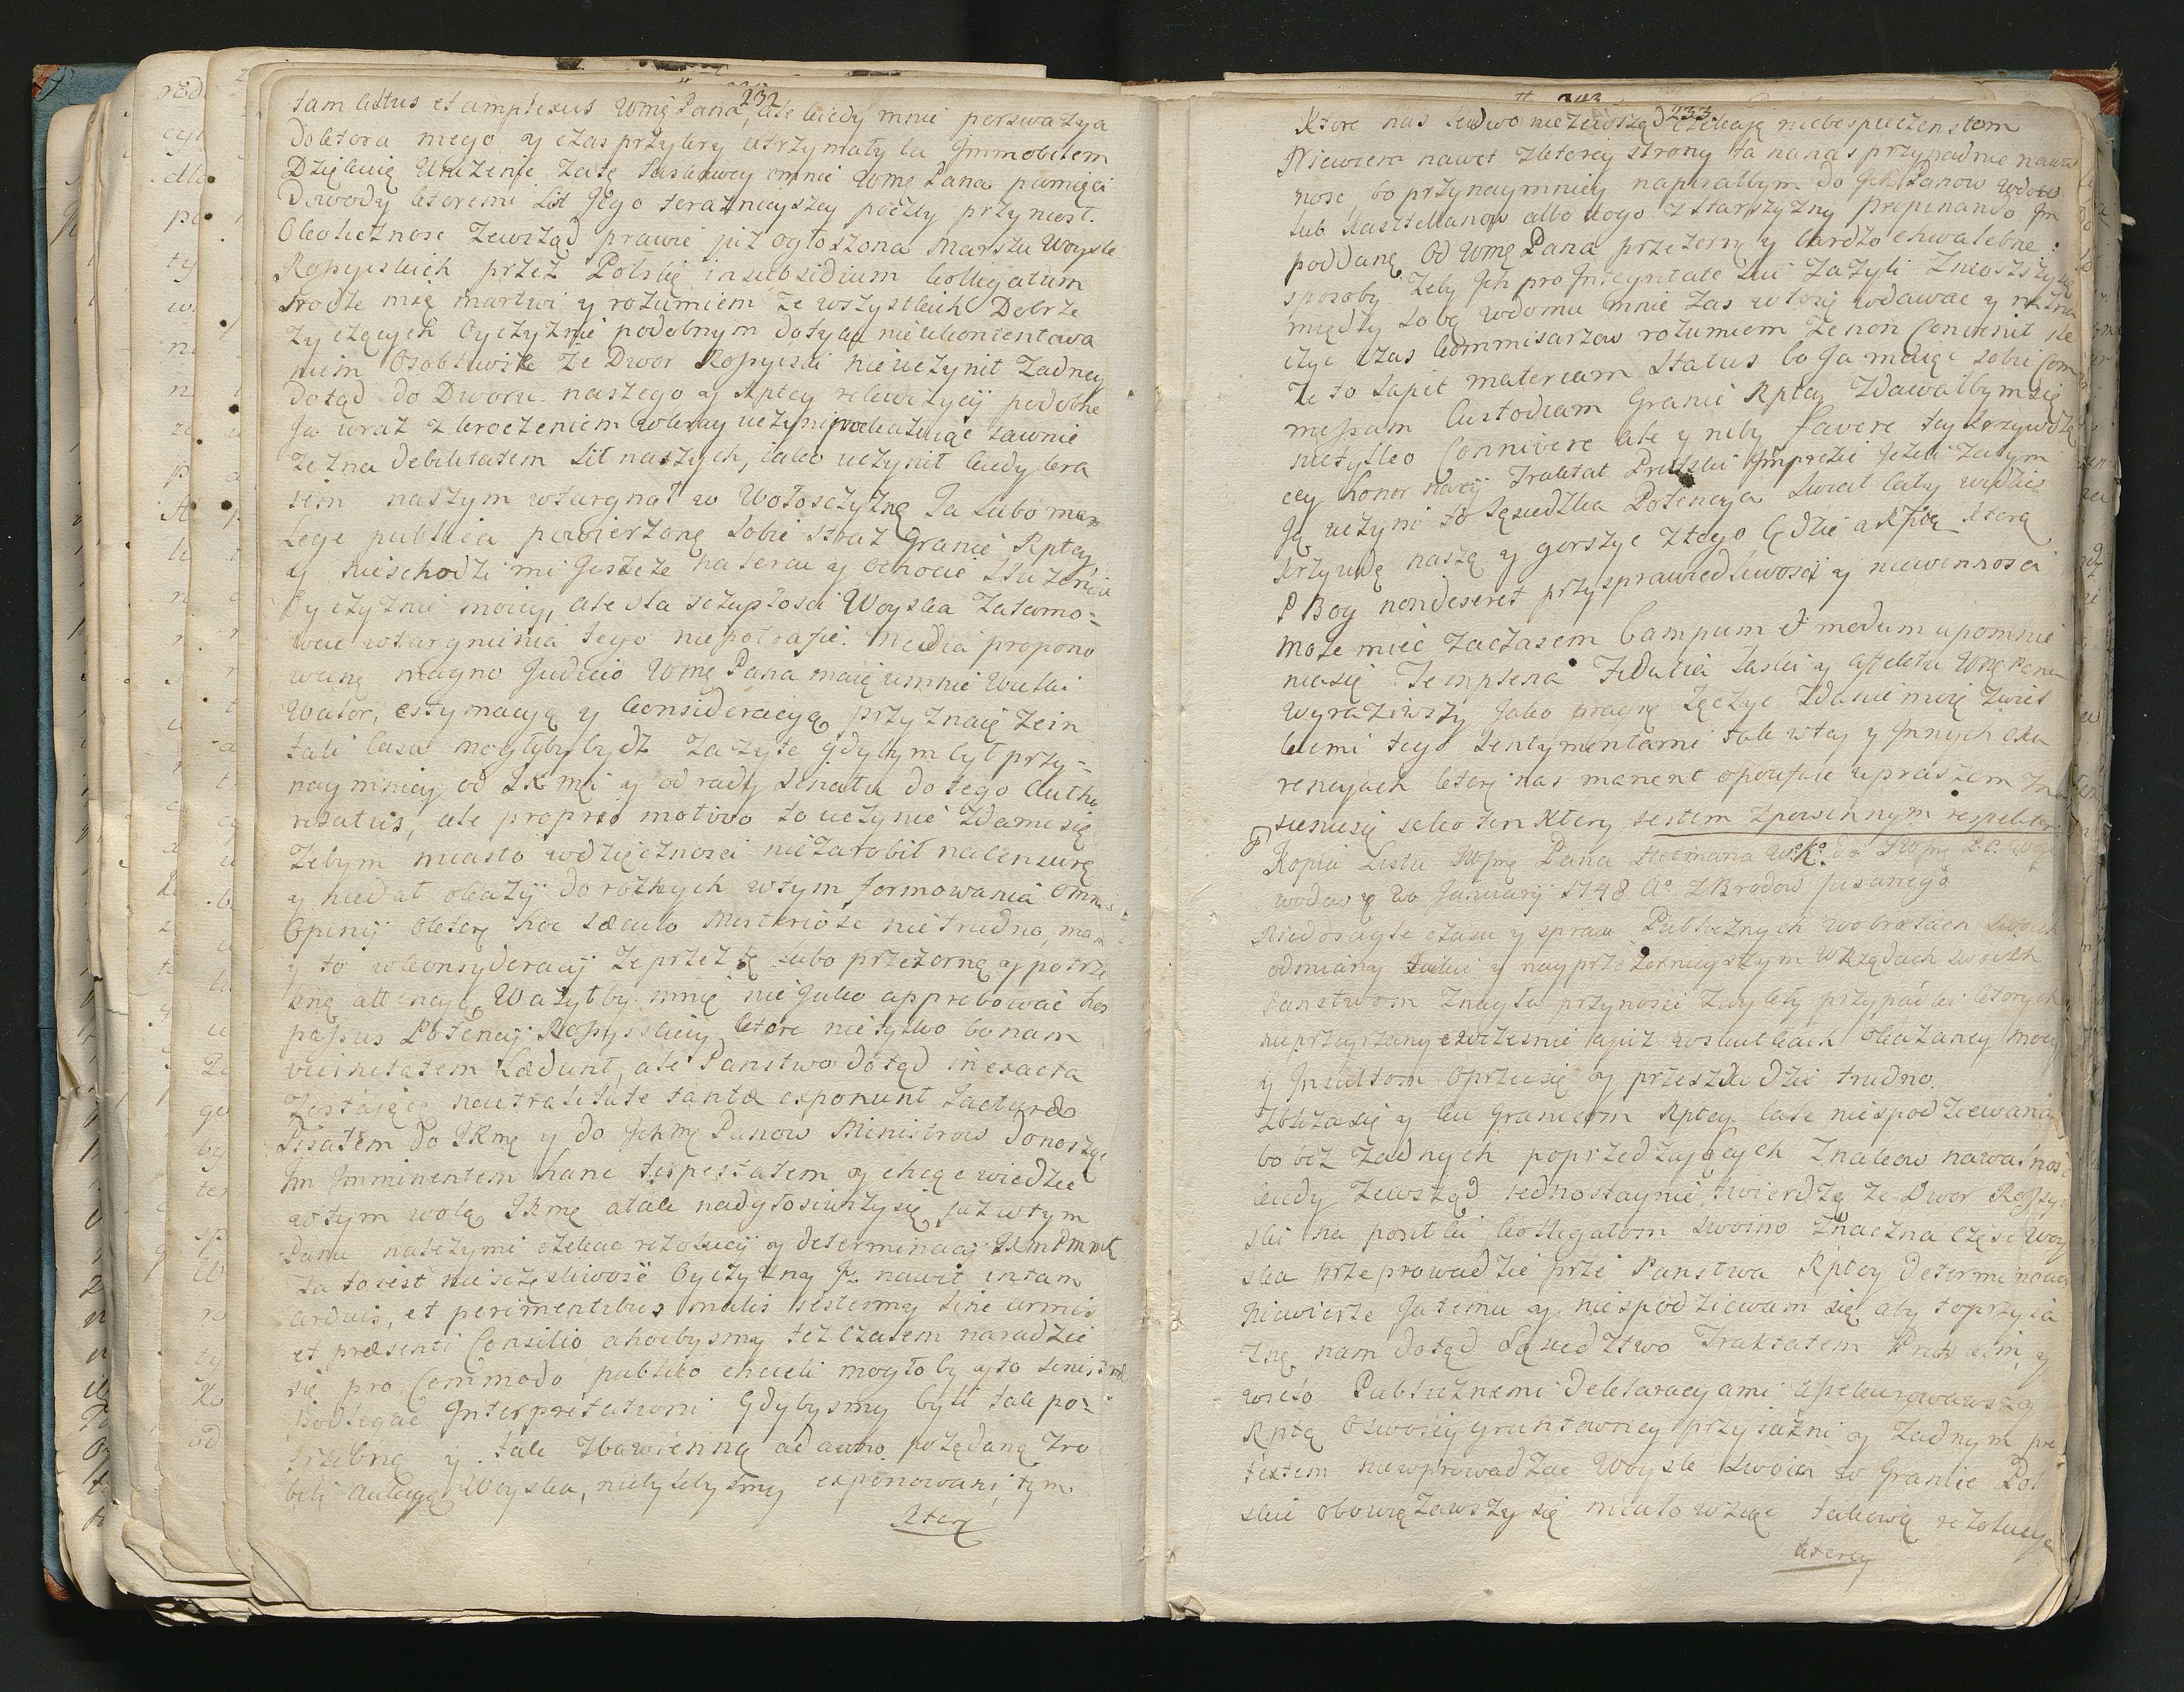 232
tam Citius et amplexus Wmę Pana, ale kiedy mnie perswazya
doktora mego y czas przykry utrzymały tu Jmmobilem
Dziękuię Uniżenie za tę Łaskawey o mnie Wmę Pana pamięci
Dowody ktoremi List Jego teraznieyszey poczty przyniosł.
Okolicznosc zewsząd prawie już ogłoszona Marszu Woysk
Rossyiskich przez Polskę in subsidium Collegatum
srodze mię martwi y rozumiem ze wszystkich Dobrze
Zyczących Oyczyznie podobnym dotyka nieukontentowa
niem Osobliwie że Dwor Rossyiski nie uczynił Zadney
dotąd do Dworu naszego y Rptey rekwizycij podobne
Ja wraz z kroczeniem Wokray uczyni pokazuiąc iawnie
że zna debilitatem sił naszych, iako uczynił kiedy kra
iem naszym wtargnął w Wołosczyznę Ja lubo mam
Lege publica powierzoną sobie straż Granic Rptey
y nieschodzi mi Jeszcze na sercu y ochocie służenia
Oyczyznie moiey, ale dla sczupłosci Woyska zatamo=
wac wtargnienia tego niepotrafię. Media propono
wane magno Judicio Wmę Pana maią u mnie Wielki
Walor, estymacyą y konsyderacyą, przyznaię że in
tali casu mogłyby bydz zażyte gdybym był przy=
naymniey od JKmci y od rady Senatu do tego Autho
risatus, ale proprio motivo to uczynic zdami się
Zebym miasto wdzięcznosci niezarobił na censurę
y niedał okazij do rożnych w tym formowania omnis
Opinij o ktorę hoc sæculo Misteriose nie trudno, mam
y to w konsyderacij że przez tę lubo przezorną y potrze
bną attencyą Ważyłby mnę nie Jako approbować hos
passus Potencij Rossyiskiey ktore nie tylko bonam
vicinitatem Lædunt, ale Panstwo dotąd in exacta
Zostaiące neutralitate tantæ exponunt Jacturæ
Pisałem do JKmę y do Jchmę Panow Ministrow donosząc
Jm Jmminentem hanc tępestatem y chcąc wiedziec
w tym wolą JKmę a tak nadgłosiwszy się już w tym
Panu należymi czekac rezolucij y determinacij
Ta to iest nieszczęsliwość Oyczyzny że nawet in tam
arduis, et perimentibus malis iestesmy sine armis
et præsenti Consilio a hocbysmy też czasem naradzic
się pro Commodo publico chcieli mogłoby y to sinistræ
podlegac Jnterpretationi Gdybysmy byli tak po=
trzebną y tak zbawienną a dawno pożądaną zro
bili aukcyą Woyska, nie bylibysmy exponowani tym
Ktorę
233.
Ktore nas ledwo nie zewsząd czekają niebespieczenstwom
Niewiem nawet z ktorey strony ta na nas przypadnie nawał
nosc, bo przynaymniey napisałbym do Jch Panow Wdow
lub Kasztellanow albo kogo z starszyzny propinando Jm
poddanę Od Wmę Pana przezernę y bardzo chwalebne
sposoby żeby Jch pro Jntegritate sui zażyli zniozszy się
między sobą w domu mnie zas w to się wdawac y nazna
czyc czas kommisarzow rozumiem że non Convenit ile
że to sapit materiam Status bo Ja maiąc sobie Com
missam Custodiam Granic Rptey zdawałbym się
nie tylko Connivere ale y niby favere tey krzywdzą
cey honor Nacij Traktat Prutski Jmprezie Jeżeli zatym
Ją uczyni ta Sąsiedzka Potencya Swiat cały widzie
krzywdę naszą y gorszyc z tego będzie a Rptą ktorą
P Bog non deseret przy sprawiedliwosci y niewinnosci
może miec za czasem Campum et modum upomnie
nia się Je mplena Fiducia łaski y affektu Wmę Pana
wyraziwszy Jako pragnę łączyc zdanie moię zwiel
kiemi tego sentymentami tak w tey y Jnnych oku
rencyach ktorę nas manent o poufałe upraszam zno
sienie się iako ten ktory iestem z powinnym respektem
Kopia Listu Jwmę Pana Hetmana W.K. do Jwmę P. C. Woie
wodow de Januarij 1748 A° z Brodow pisanego
Niedosięgłe czasu y spraw Publicznych w obrotach swoich
odmiany ludzi y nayprzezornieyszym w Rządach swoich
Panstwom znagła przynosic zwykły przypadki ktorych
nieprzeyrzanych wczesnie a już w skutkach okazaney mocy
y Jnsultom oprzec się y przeszkodzic trudno.
Zbliża się y ku Granicom Rptey całe niespodziewania
bo bez żadnych poprzedzających Znakow nawałnosc
kiedy zewsząd iednostaynie twierdzą że Dwor Rossyi
ski na posiłki kollegatom swoim Znaczną częsc Woy
ska przeprowadzic przez Panstwa Rptey determinował
Niewierze Ja temu y niespodziewam się aby to przyia
zne nam dotąd Sąsiedztwo Traktatem Prutskim, y
wielo Publicznemi deklaracyami upewnowawszy
Rptą O swoiey gruntowney przyiazni y żadnym pre
textem niewprowadzac Woysk swoich w Granice Pol
skie obowiązawszy się miało wziąc takową rezolucyą
ktorey